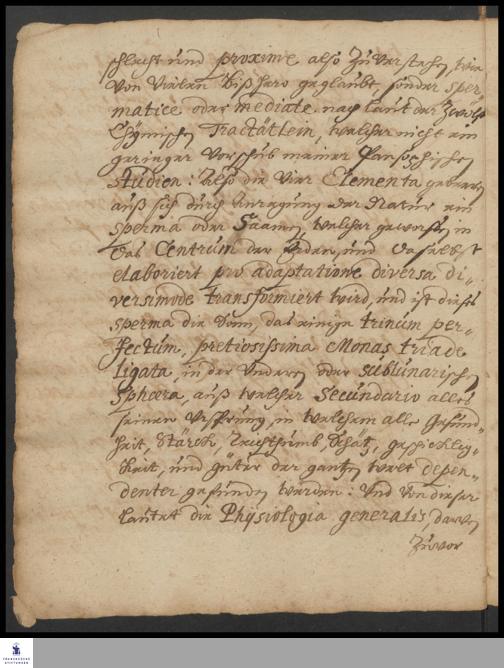 schlecht und proxime also Zuverstehen, wie
von vielen bißhero geglaubt, sonder sper-
matice oder mediate nach laut der Zwölff
Chÿmischen Tractätlein, welcher nicht ein
geringer vorschub meiner
Studien: Also die vier Elementa gebären
auß sich durch der Natur ein
sperma oder Saamen, welcher geworffen in
das Centrum der Erden, und daselbst
elaboriert pro adaptatione diversa di-
versimode transformiert wird, und ist dieses
sperma die Dunn, das einige trinum per-
fectum, pretiosissima Monas triade
ligata, in der Undern oder sublunarischen
Sphæra, auß welcher Secundario alles
seinen Ursprung, in welchem alle Gesund-
heit, Stärck, Reichthumb, Schätz, geschicklig-
keit, und güeter der gantzen welt depen-
denter gefunden werden: Und von dieser
lautet die Phÿsiologia generalis, davon
Zuvor
FRANCKESCHE
STIFTUNGEN